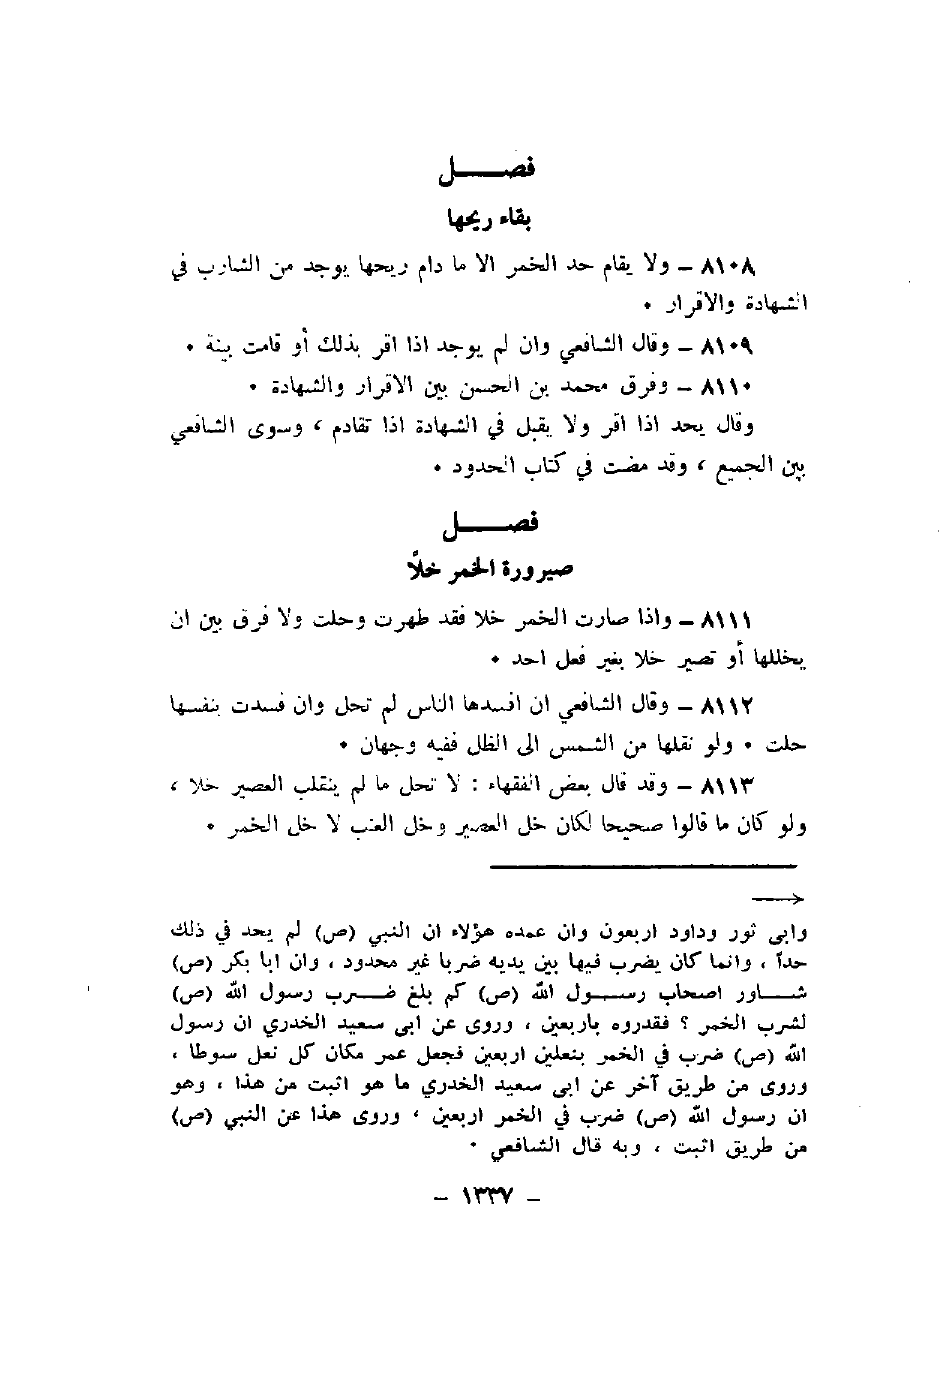 فصـــــل
بقاء ريحها
٨١٠٨ – ولا يقام حد الخمر الا ما دام ريحها يوجد من الشارب في
الشهادة والاقرار ٠
٨١٠٩ – وقال الشافعي وان لم يوجد اذا اقر بذلك أو قامت بينة ٠
٨١١٠ – وفرق محمد بن الحسن بين الاقرار والشهادة ٠
وقال يحد اذا اقر ولا يقبل في الشهادة اذا تقادم ، وسوى الشافعي
بين الجميع ، وقد مضت في كتاب الحدود ٠
فصـــــل
صيرورة الخمر خلاً
٨١١١ – واذا صارت الخمر خلا فقد طهرت وحلت ولا فرق بين ان
يخللها أو تصير خلا بغير فعل احد ٠
٨١١٢ – وقال الشافعي ان افسدها الناس لم تحل وان فسدت بنفسها
حلت ٠ ولو نقلها من الشمس الى الظل ففيه وجهان ٠
٨١١٣ – وقد قال بعض الفقهاء : لا تحل ما لم ينقلب العصير خلا ،
ولو كان ما قالوا صحيحا لكان خل العصير وخل العنب لا خل الخمر ٠
→
وابى ثور وداود اربعون وان عمده هؤلاء ان النبي (ص) لم يحد في ذلك
حدآ ، وانما كان يضرب فيها بين يديه ضربا غير محدود ، وان ابا بكر (ص)
شـــاور اصحاب رســـول الله (ص) كم بلغ ضـــرب رسول الله (ص)
لشرب الخمر ؟ فقدروه باربعين ، وروى عن ابى سعيد الخدري ان رسول
الله (ص) ضرب في الخمر بنعلين اربعين فجعل عمر مكان كل نعل سوطا ،
وروى من طريق آخر عن ابى سعيد الخدري ما هو اثبت من هذا ، وهو
ان رسول الله (ص) ضرب في الخمر اربعين ، وروى هذا عن النبي (ص)
من طريق اثبت ، وبه قال الشافعي ٠
– ١٣٣٧ –